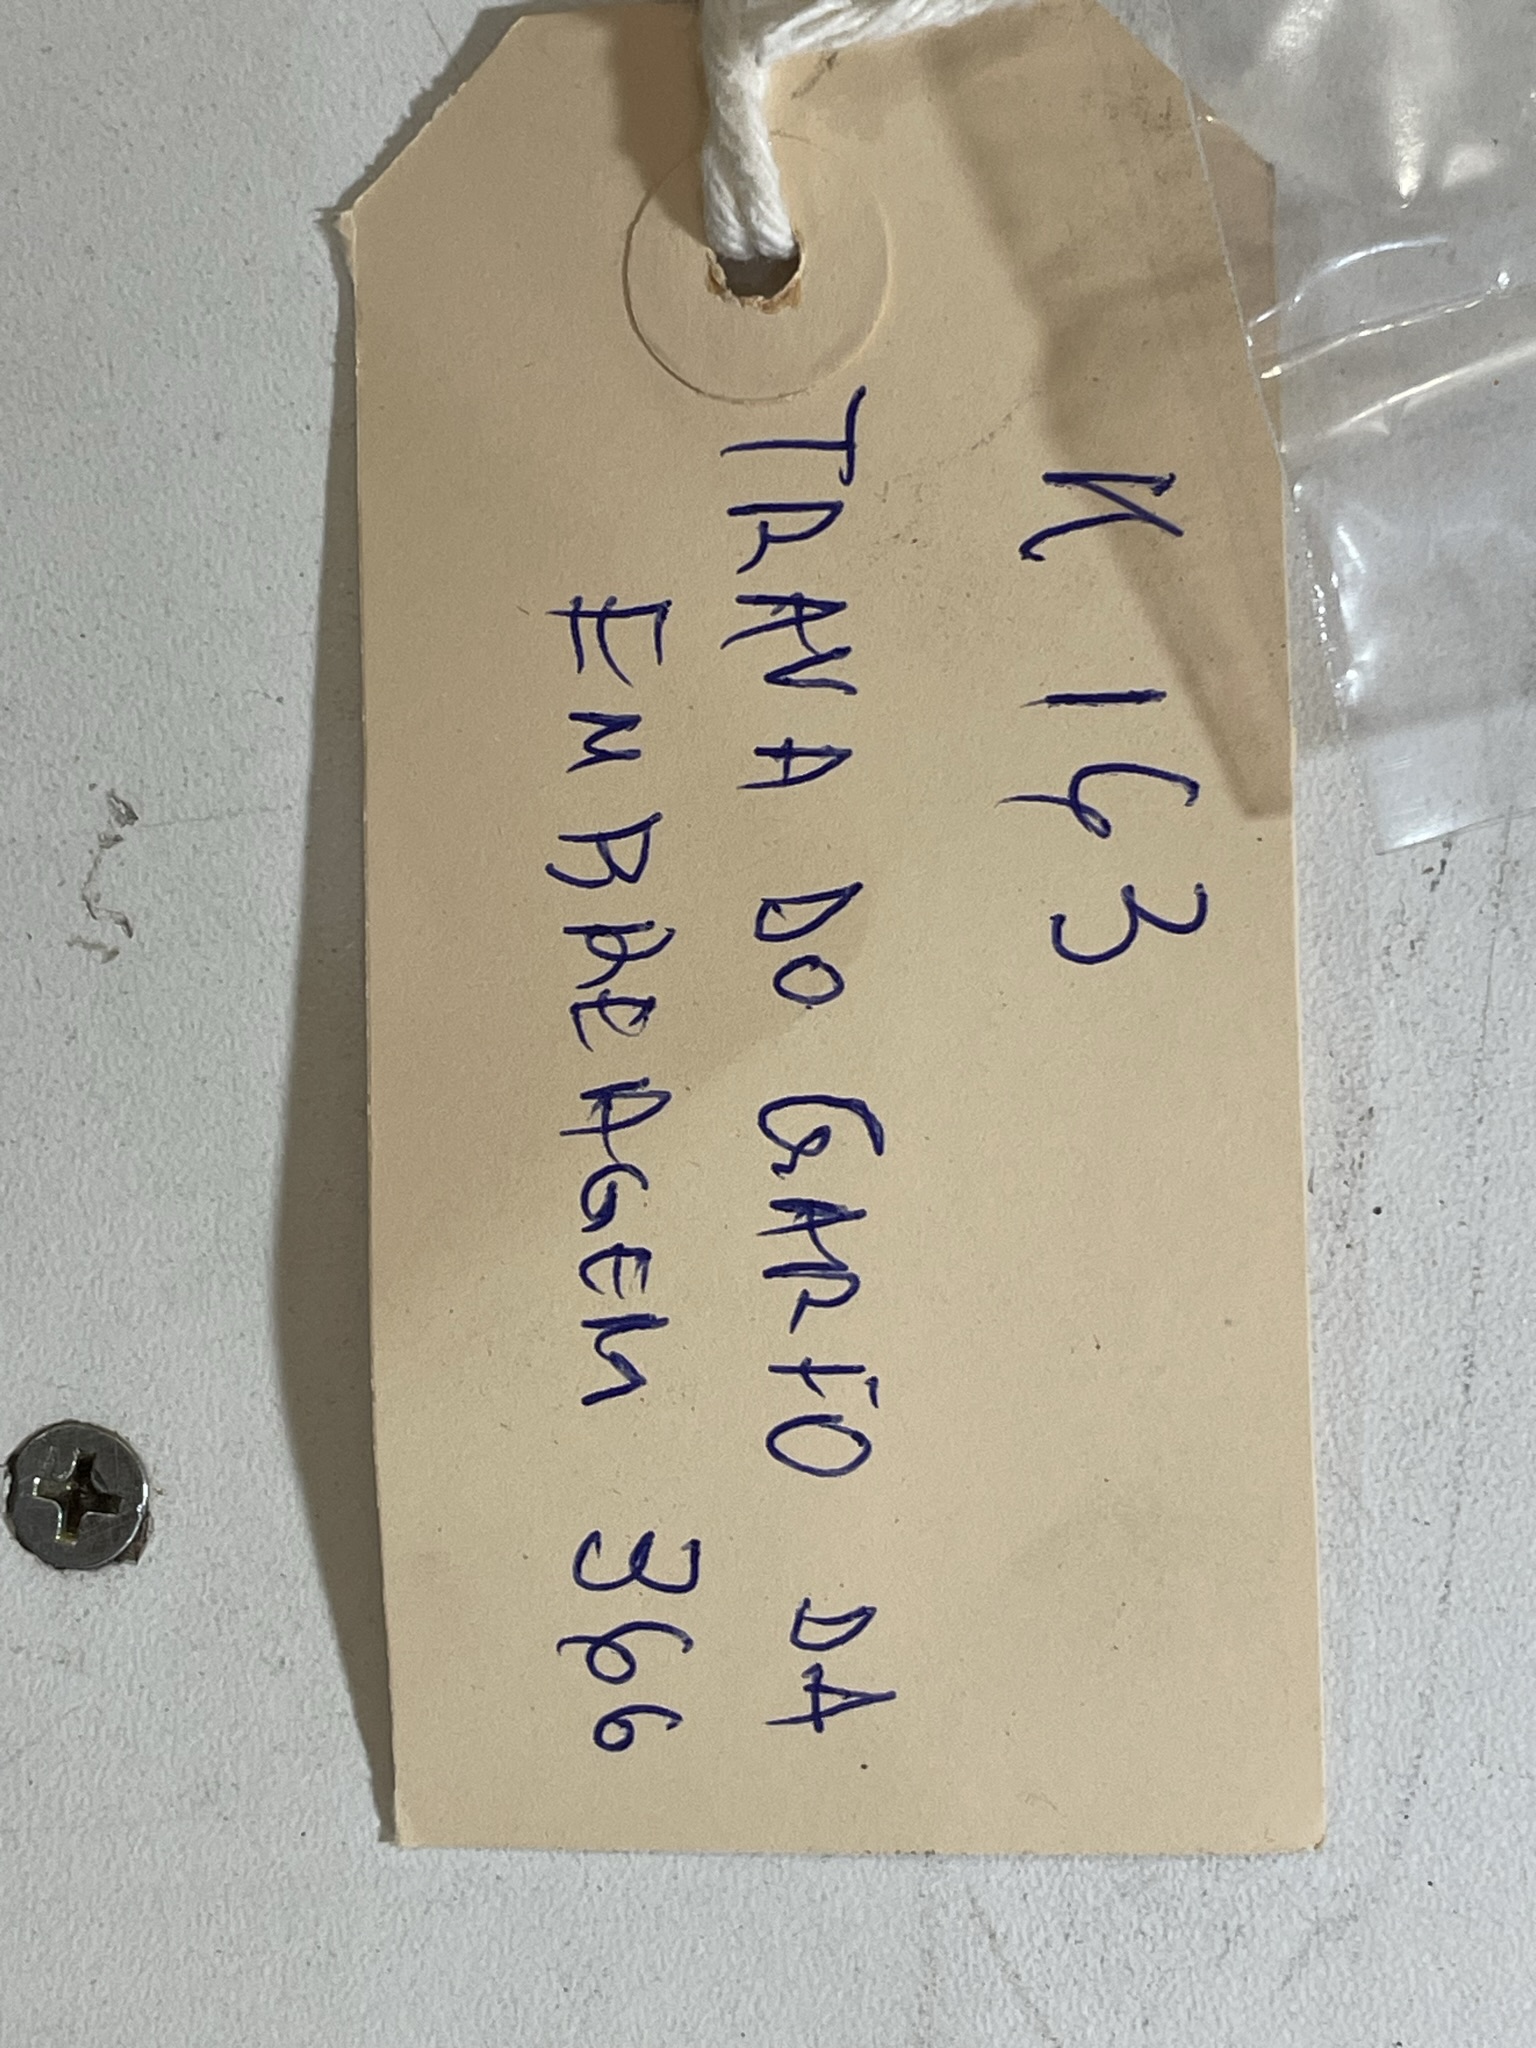 K 163
TRAVA DO GARFO DA
EMBREAGEM 366